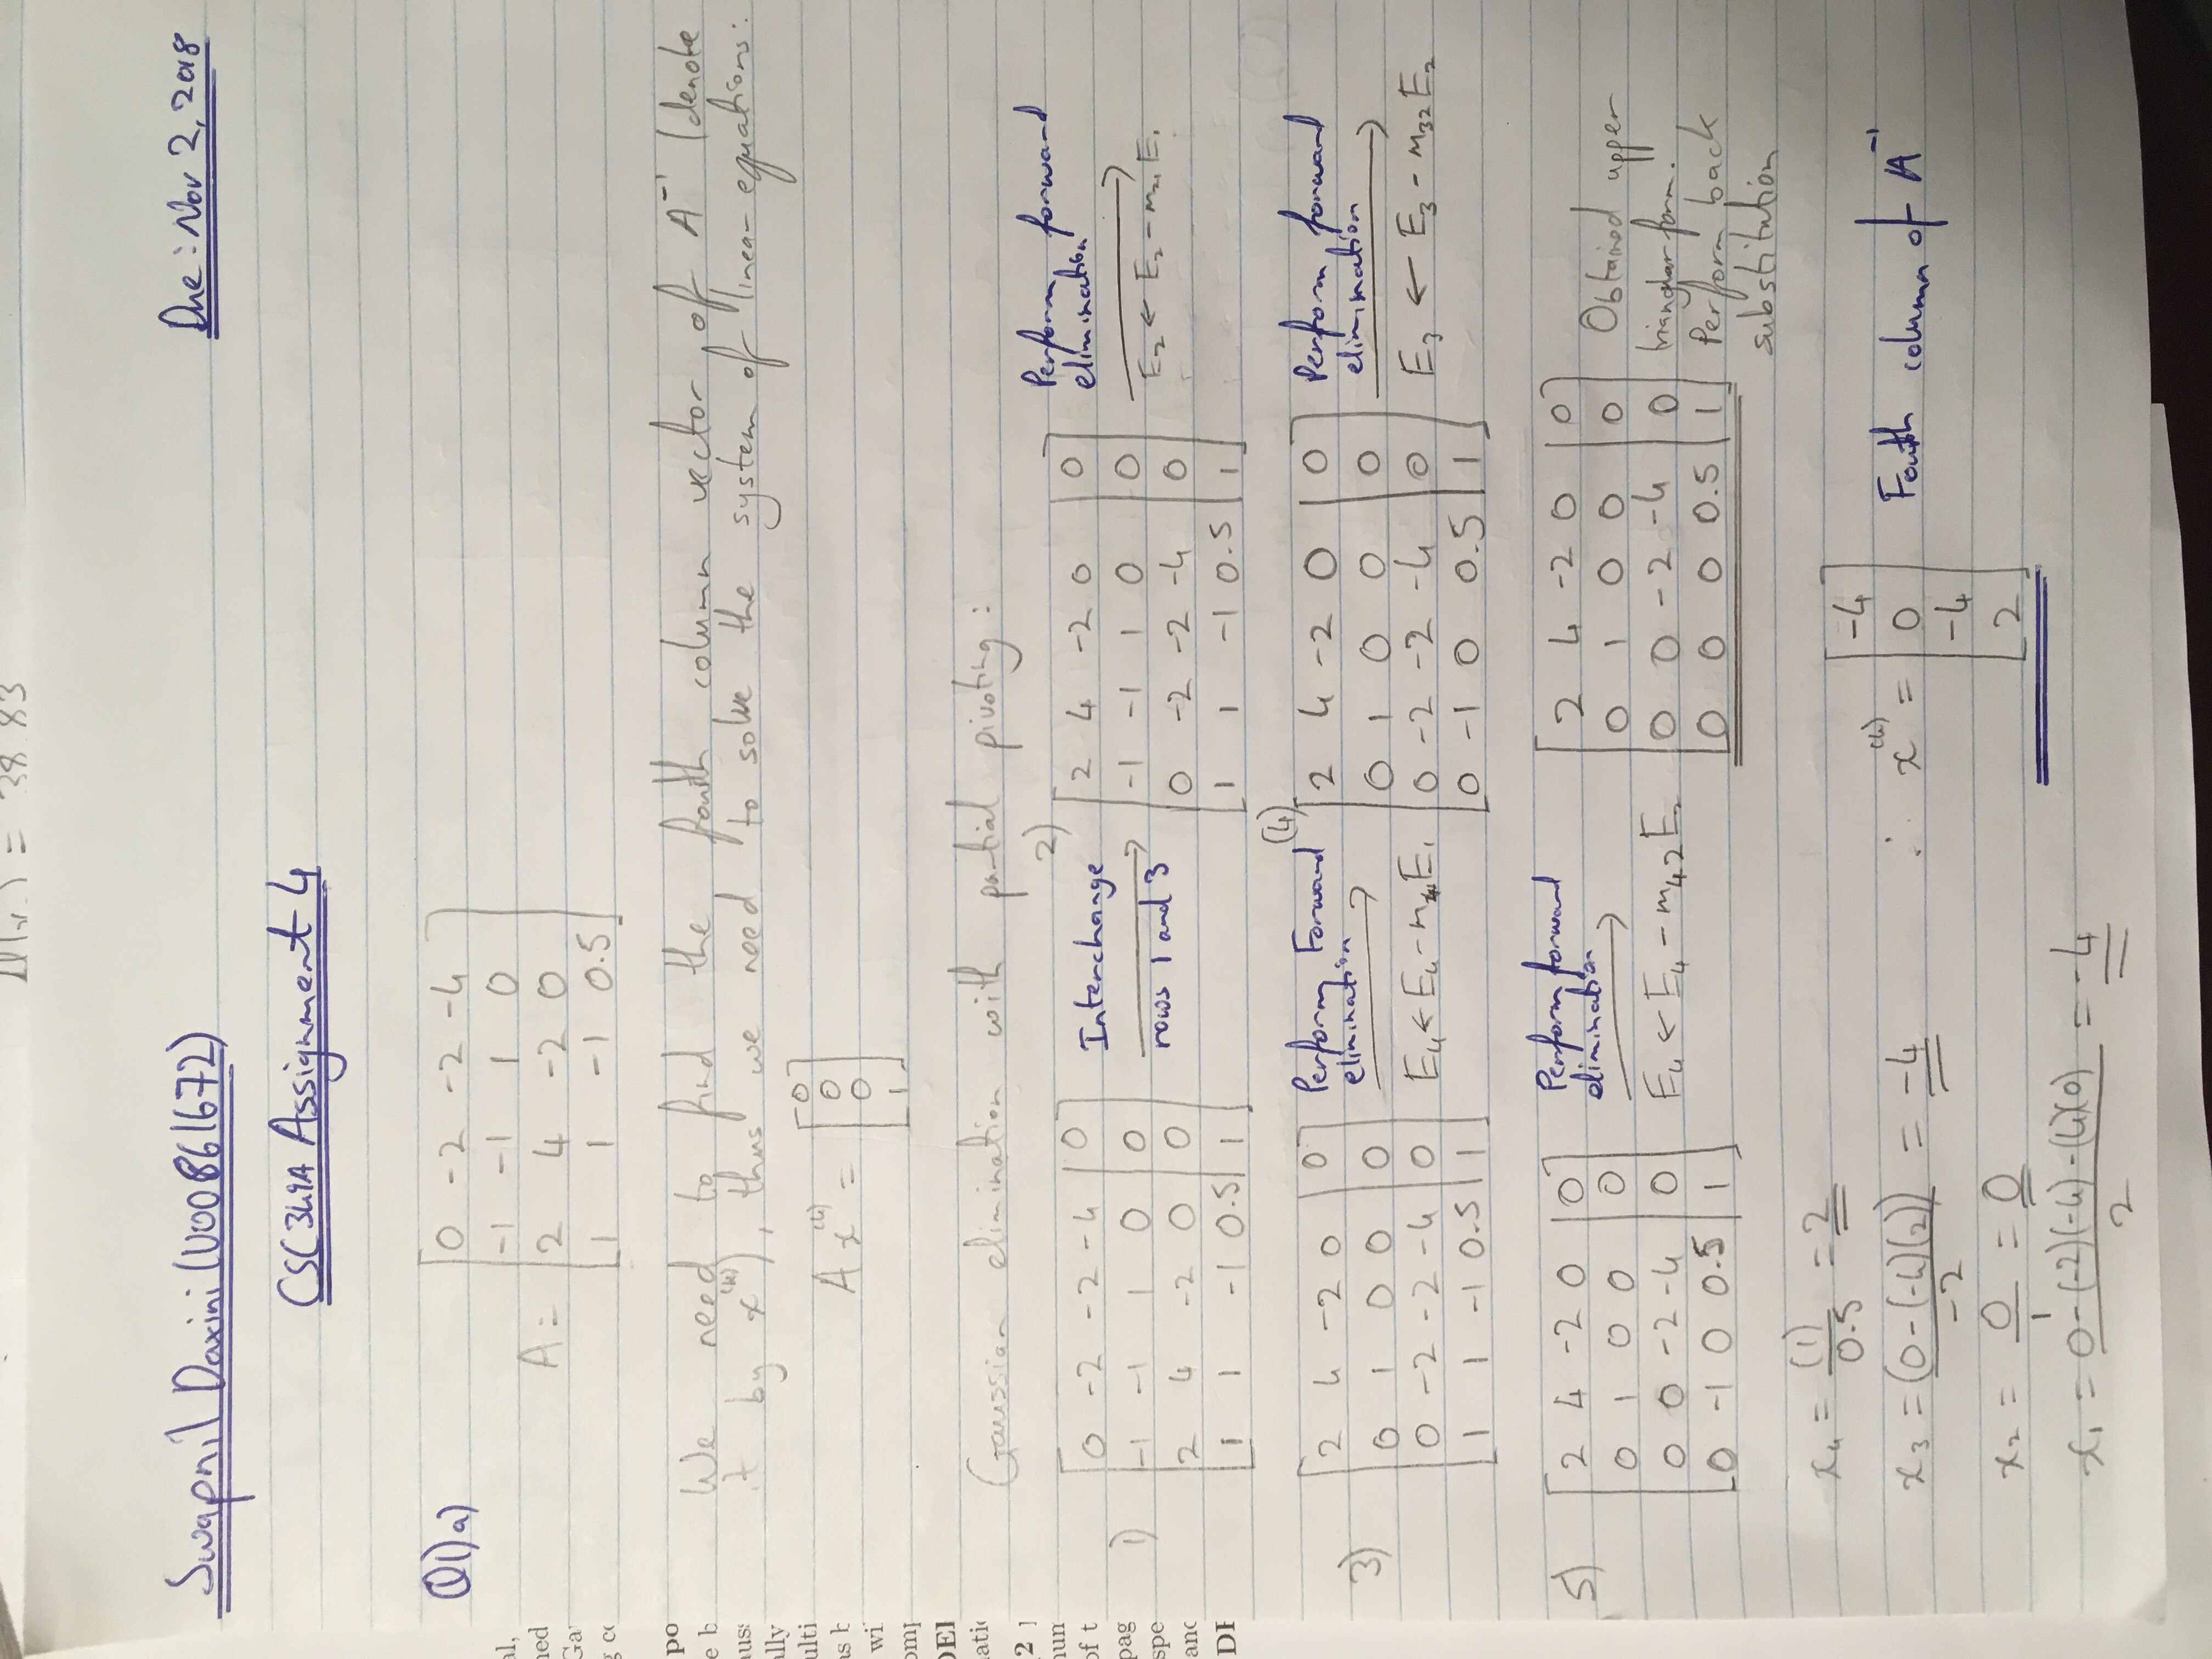 = 38.83
Swapnil Daxini (V00861672)
Due: Nov 2, 2018
CSC349A Assignment 4
Q1) a)
A =
0 -2 -2 -4
-1 -1 1 0
2 4 -2 0
1 1 -1 0.5
We need to find the fourth column vector of A⁻¹ (denote
it by x⁽⁴⁾), thus we need to solve the system of linear equations:
A x⁽⁴⁾ =
0
0
0
1
Gaussian elimination with partial pivoting:
1)
0 -2 -2 -4 | 0
-1 -1 1 0 | 0
2 4 -2 0 | 0
1 1 -1 0.5 | 1
Interchange
rows 1 and 3
2)
2 4 -2 0 | 0
-1 -1 1 0 | 0
0 -2 -2 -4 | 0
1 1 -1 0.5 | 1
Perform forward
elimination
E₂ ← E₂ - m₂₁ E₁
3)
2 4 -2 0 | 0
0 1 0 0 | 0
0 -2 -2 -4 | 0
1 1 -1 0.5 | 1
Perform Forward
elimination
E₄ ← E₄ - m₄₁E₁
(4)
2 4 -2 0 | 0
0 1 0 0 | 0
0 -2 -2 -4 | 0
0 -1 0 0.5 | 1
Perform forward
elimination
E₃ ← E₃ - m₃₂E₂
5)
2 4 -2 0 | 0
0 1 0 0 | 0
0 0 -2 -4 | 0
0 -1 0 0.5 | 1
Perform forward
elimination
E₄ ← E₄ - m₄₂E₂
2 4 -2 0 | 0
0 1 0 0 | 0
0 0 -2 -4 | 0
0 0 0 0.5 | 1
Obtained upper
trianglar form.
Perform back
substitution
x₄ = (1)/0.5 = 2
x₃ = (0-(-4)(2))/-2 = -4
x₂ = 0/1 = 0
x₁ = 0-(-2)(-4)-(4)(0)/2 = -4
∴ x⁽⁴⁾ =
-4
0
-4
2
Fourth column of A⁻¹